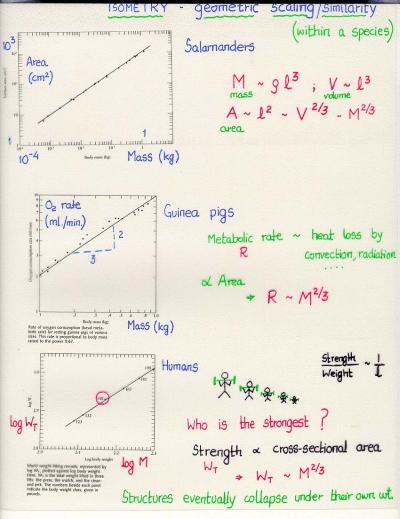 ISOMETRY - geometric scaling/similarity
(within a species)
Salamanders
10³
Area
(cm²)
1
10⁻⁴
1
Body mass (kg)
Mass (kg)
M ~ ρl³ ; V ~ l³
mass
volume
A ~ l² ~ V^2/3 ~ M^2/3
area
Guinea pigs
O₂ rate
(ml./min.)
2
3
Body mass (kg)
Mass (kg)
Rate of oxygen consumption (basal meta-
bolic rate) for resting guinea pigs of various
sizes. This rate is proportional to body mass
raised to the power 0.67.
Metabolic rate ~ heat loss by
R
convection, radiation
....
∝ Area
⇒ R ~ M^2/3
Humans
Strength/Weight ~ 1/l
log W_T
2.0
2.1
2.2
2.3
Log body weight
log M
123
132
165
198
World weight-lifting records, represented by
log W_T, plotted against log body weight.
Here, W_T is the total weight lifted in three
lifts: the press, the snatch, and the clean-
and-jerk. The numbers beside each point
indicate the body weight class, given in
pounds.
Who is the strongest ?
Strength ∝ cross-sectional area
W_T
⇒ W_T ~ M^2/3
Structures eventually collapse under their own wt.